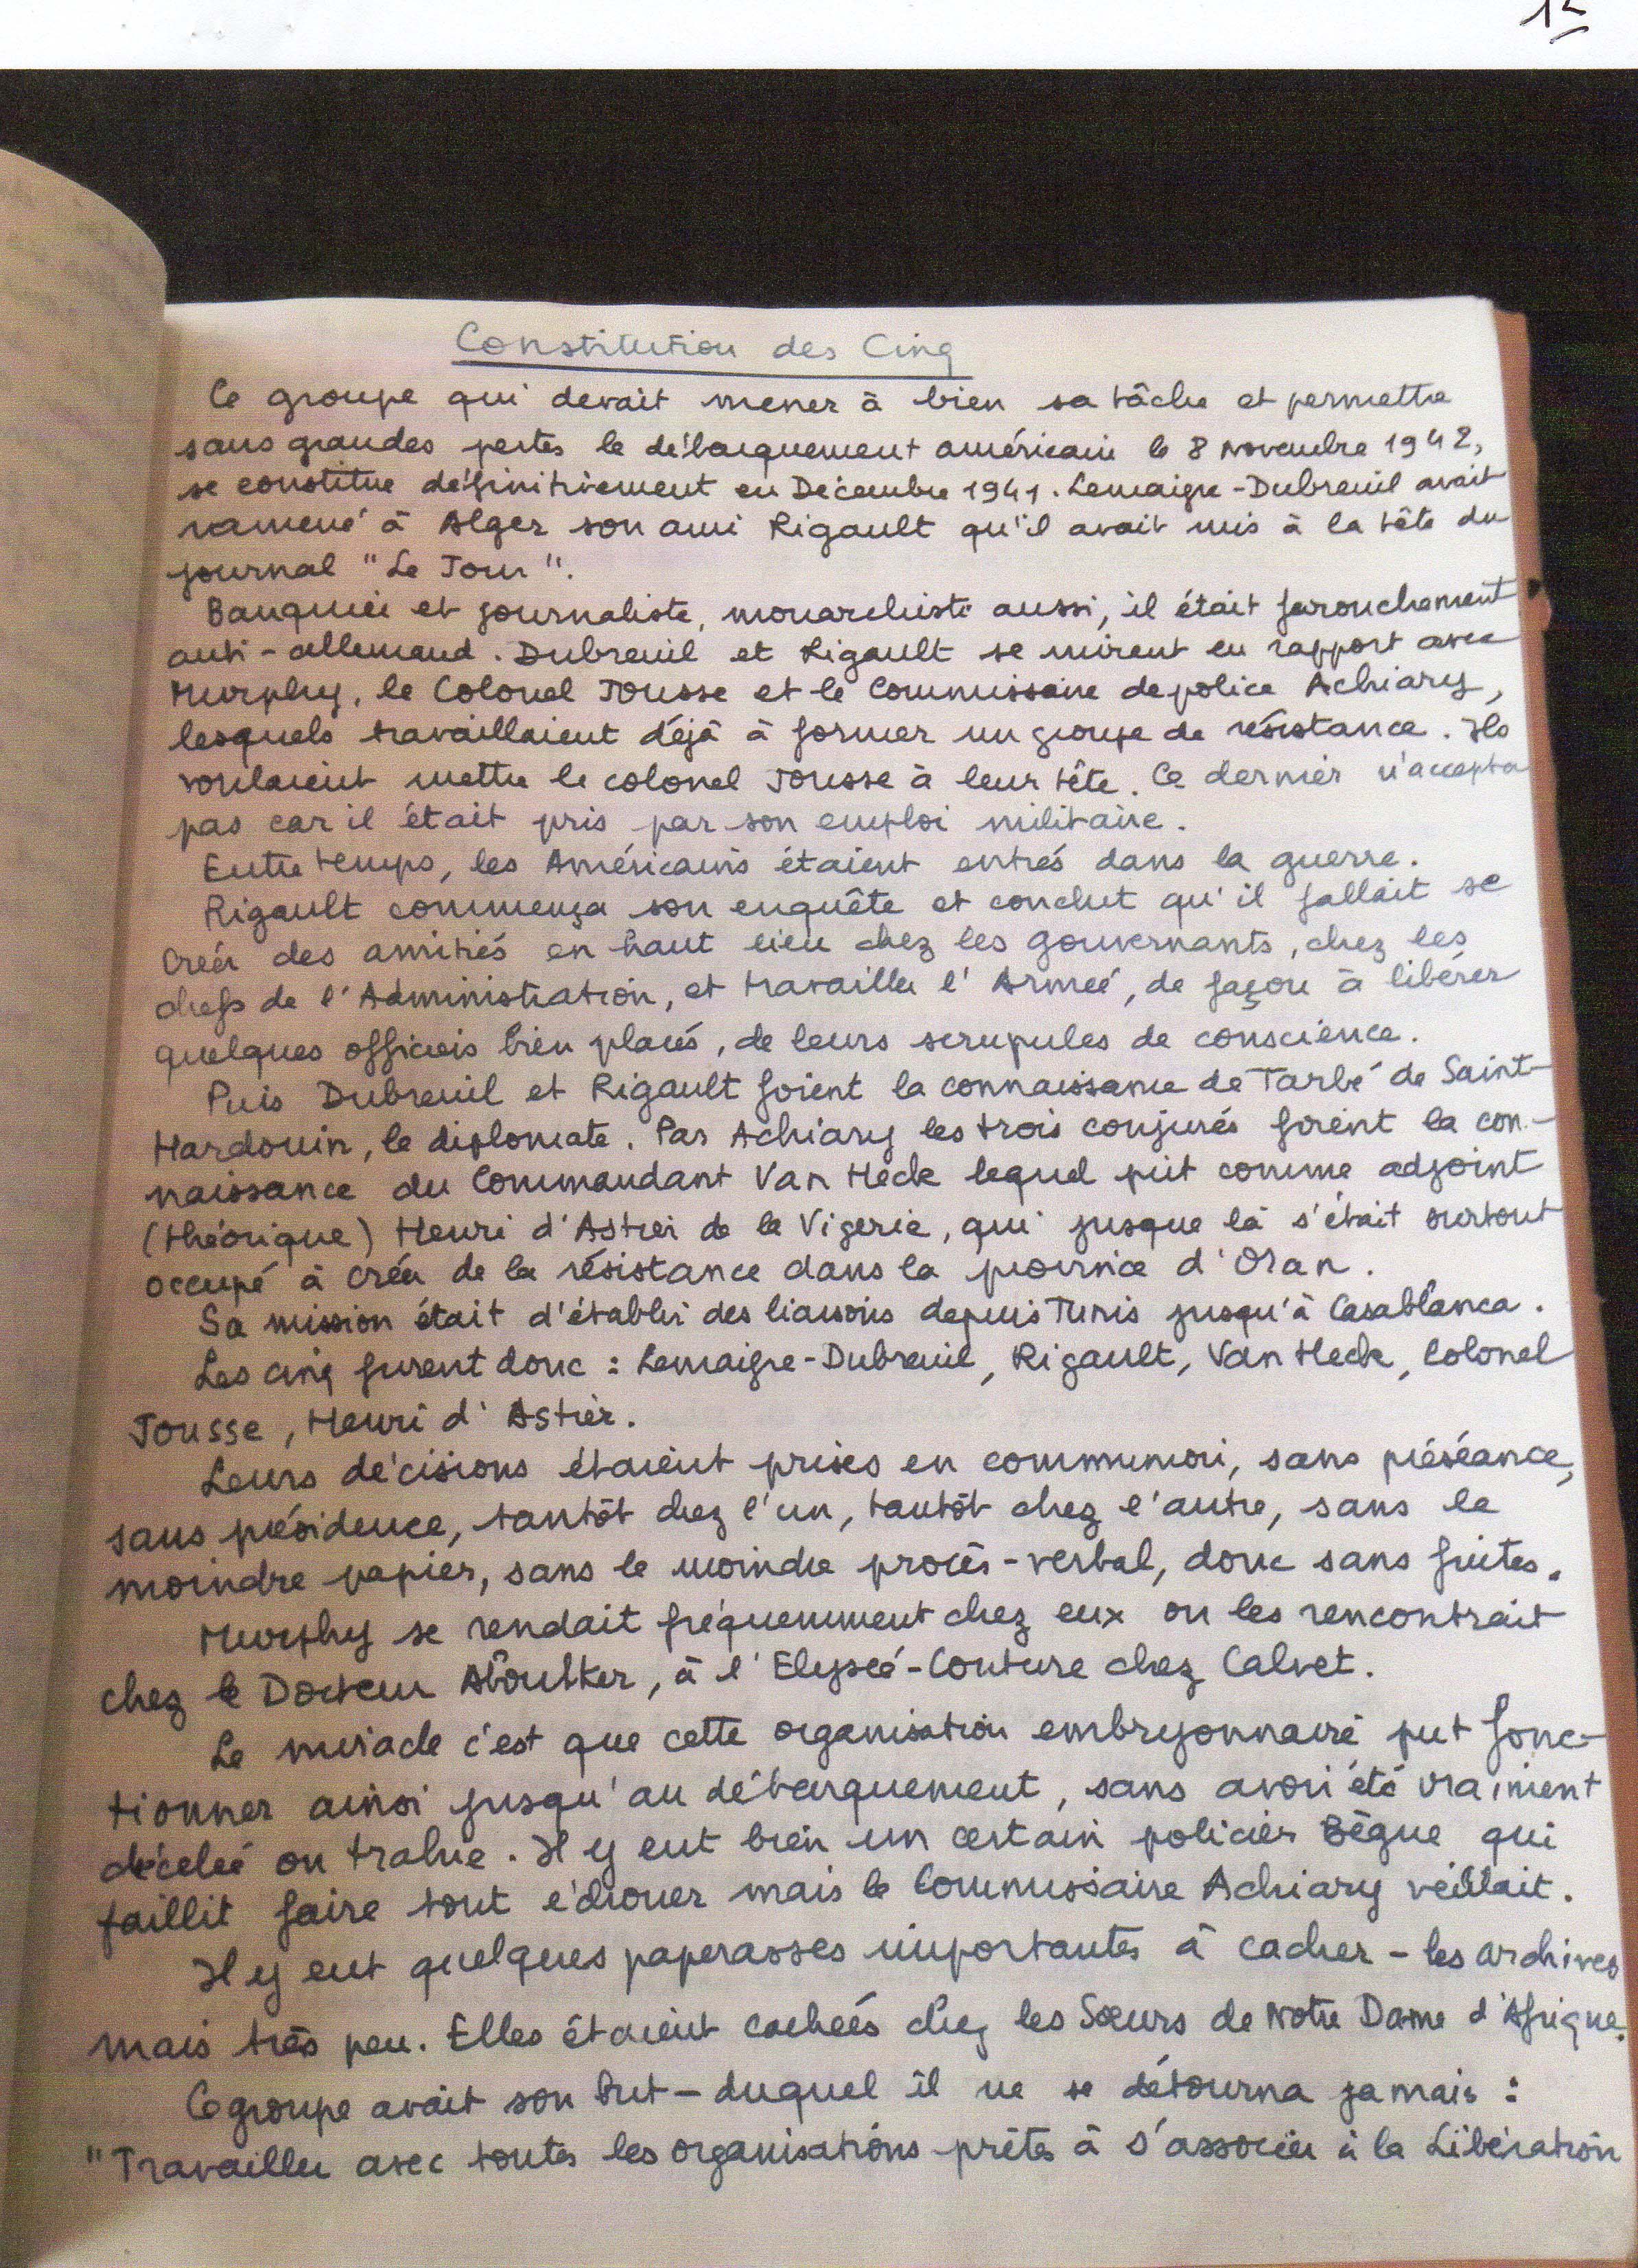 Constitution des Cinq
Ce groupe qui devait mener à bien sa tâche et permettre
sans grandes pertes le débarquement américain le 8 Novembre 1942,
se constitue définitivement en Décembre 1941. Lemaigre-Dubreuil avait
ramené à Alger son ami Rigault qu'il avait mis à la tête du
journal "Le Jour".
Banquier et journaliste, monarchiste aussi, il était farouchement
anti-allemand. Dubreuil et Rigault se mirent en rapport avec
Murphy, le Colonel Jousse et le Commissaire de police Achiary,
lesquels travaillaient déjà à former un groupe de résistance. Ils
voulaient mettre le colonel Jousse à leur tête. Ce dernier n'accepta
pas car il était pris par son emploi militaire.
Entre temps, les Américains étaient entrés dans la guerre.
Rigault commença son enquête et conclut qu'il fallait se
créer des amitiés en haut lieu chez les gouvernants, chez les
chefs de l'Administration, et travailler l'Armée, de façon à libérer
quelques officiers bien placés, de leurs scrupules de conscience.
Puis Dubreuil et Rigault firent la connaissance de Tarbé de Saint-
Hardouin, le diplomate. Par Achiary les trois conjurés firent la con-
naissance du Commandant Van Heck lequel prit comme adjoint
(théorique) Henri d'Astier de la Vigerie, qui jusque là s'était surtout
occupé à créer de la résistance dans la province d'Oran.
Sa mission était d'établir des liaisons depuis Tunis jusqu'à Casablanca.
Les cinq furent donc : Lemaigre-Dubreuil, Rigault, Van Heck, Colonel
Jousse, Henri d'Astier.
Leurs décisions étaient prises en commun, sans préséance,
sans présidence, tantôt chez l'un, tantôt chez l'autre, sans le
moindre papier, sans le moindre procès-verbal, donc sans fuites.
Murphy se rendait fréquemment chez eux ou les rencontrait
chez le Docteur Aboulker, à l'Elysée-Couture chez Calvet.
Le miracle c'est que cette organisation embryonnaire put fonc-
tionner ainsi jusqu'au débarquement, sans avoir été vraiment
décelée ou trahie. Il y eut bien un certain policier Bègue qui
faillit faire tout échouer mais le Commissaire Achiary veillait.
Il y eut quelques paperasses importantes à cacher - les archives
mais très peu. Elles étaient cachées chez les Sœurs de Notre Dame d'Afrique.
Ce groupe avait son but - duquel il ne se détourna jamais :
"Travailler avec toutes les organisations prêtes à s'associer à la Libération